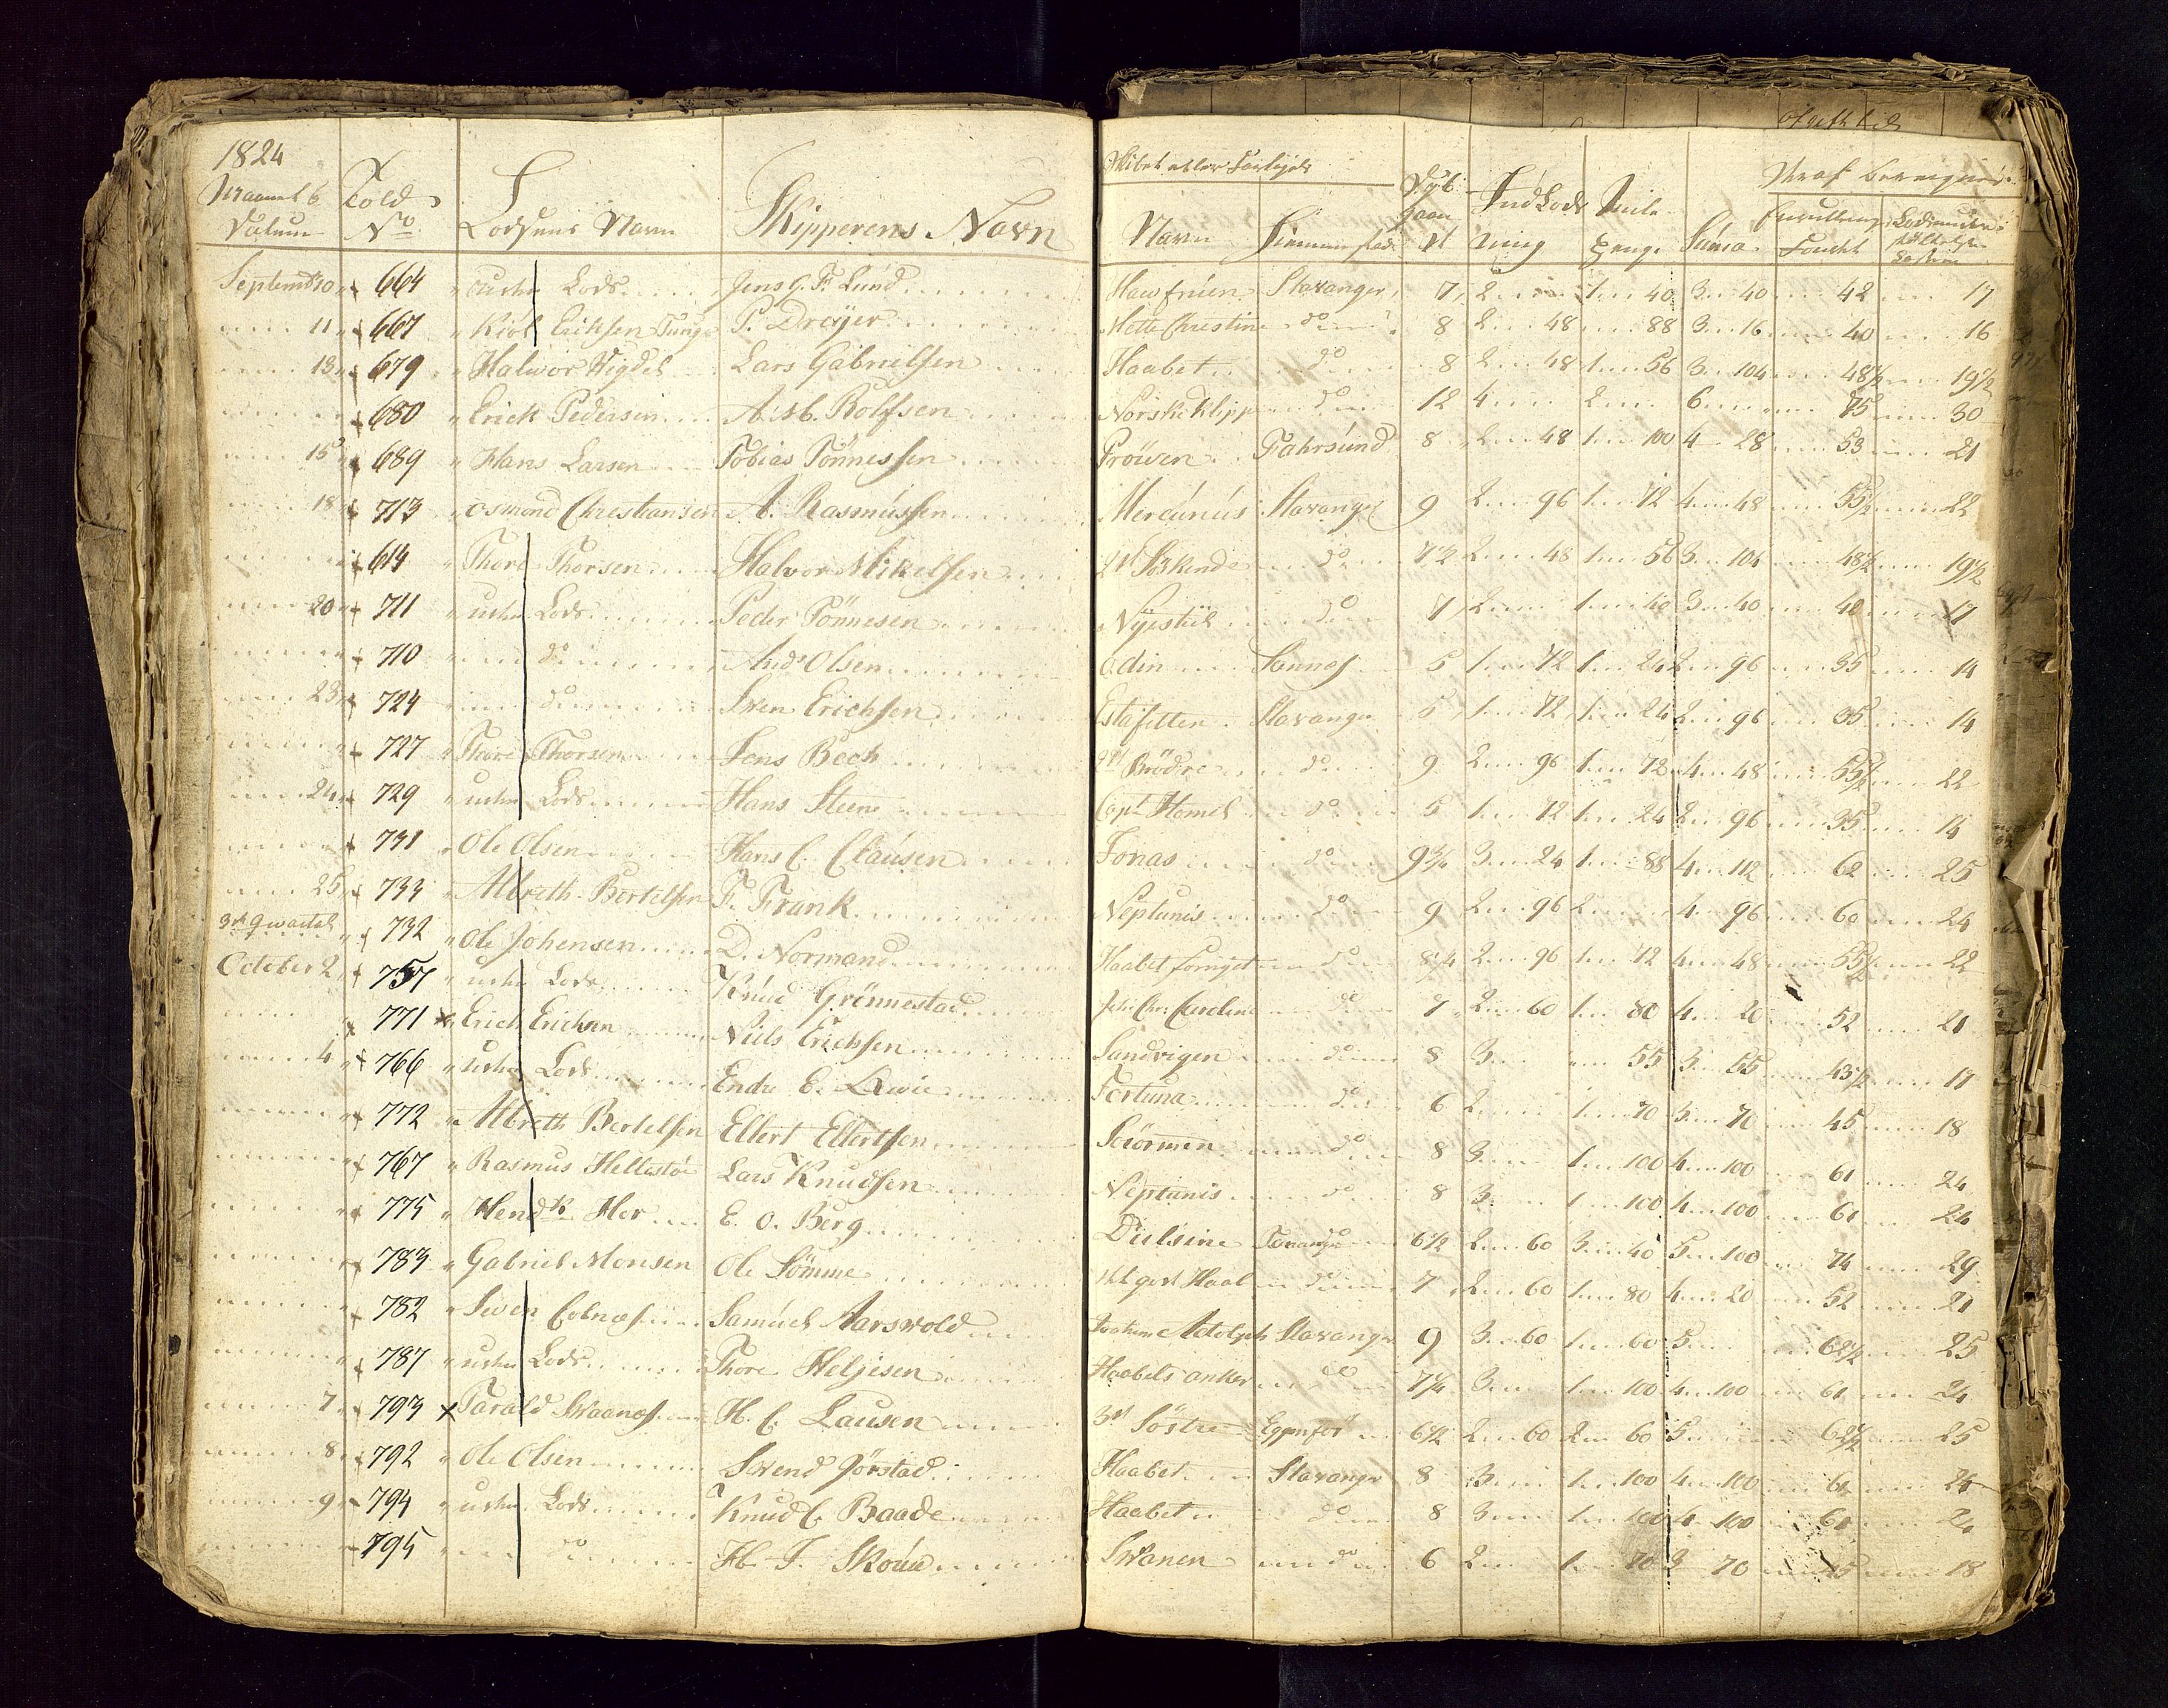 1824
Maanets Datum Told No Lodsens Navn Skipperens Navn Skibet eller Fartøyets Navn Hiemmestad Dybgaaende Indlodsning Miile Penge Suma Heraf beregnes
Septembr 10 664 uvisse Lods Jens G. F. Lund Hawfruen Stavanger 7 2 1 40 3 40 42 17
11 667 Kiøl Erichsen Tunge P. Dreÿer Mette Chrestine do 8 2 48 88 3 16 40 16
13 679 Halwor Vigdel Lars Gabrielsen Haabet do 8 2 48 1 56 3 104 48 1/2 19 1/2
680 Erick Pedersen A. M. Rolfsen Norske Klippe do 12 4 2 6 75 30
15 689 Hans Larsen Tobias Tönnessen Pröwen Fahrsund 8 2 48 1 100 4 28 53 21
18 713 Osmond Chrestiansen A. Rasmussen Mercurius Stavanger 9 2 96 1 72 4 48 55 1/2 22
614 Thore Thorsen Halvor Mikelsen 2de Söskende do 7 1/2 2 48 1 56 3 104 48 1/2 19 1/2
20 711 Lods Peder Tönnesen Nÿestiil do 7 2 1 40 3 40 40 17
710 do Andrs Olsen Odin Sannes 5 1 72 1 24 2 96 35 14
23 724 do Sven Erichsen Estafetten Stavanger 5 1 72 1 24 2 96 35 14
727 Thore Thorsen Jens Bech 2de Brödre do 9 2 96 1 72 4 48 55 1/2 22
24 729 Lods Hans Steene Hans Capt Homel do 5 1 72 1 24 2 96 35 14
731 Ole Olsen Hans C. Clausen Jonas do 9 3/4 3 24 1 88 4 112 62 25
25 733 Albreth Bertelsen F. Frank Neptunis do 9 2 96 2 4 96 60 24
3de Qvartal 732 Ole Johensen D. Normand Haabet fornyet do 8 1/4 2 96 1 72 4 48 55 1/2 22
October 2 757 Lods Knud Grönnestad Joh: Chr: Caroline do 7 2 60 1 80 4 20 52 21
771 Erich Erichsen Niels Erichsen Sandvigen do 8 3 55 3 55 43 1/2 17
4 766 Lods Endre E. Fortuna do 6 2 1 70 3 70 45 18
772 Albreth Bertelsen Ellert Ellertsen Sciörmen do 8 3 1 100 4 100 61 24
767 Rasmus Hellestöe Lars Knudsen Neptunis do 8 3 1 100 4 100 61 24
775 Hendk Her E. O. Berg Diilsine 6 1/2 2 60 3 40 5 100 74 29
783 Gabriel Monsen Ole Sömme Haab do 7 2 60 1 80 4 20 52 21
782 Swen Samuel Aarsvold Adolph Stavanger 9 3 60 1 60 5 62 1/2 25
787 Lods Thore Heljesen Haabets anker do 7 1/4 3 1 100 4 100 61 24
7 793 Tarald Svaanes H. C. Lausen 3de Söstre 6 1/2 2 60 2 60 5 62 1/2 25
8 792 Ole Olsen Svend Jörstad Haabet Stavanger 8 3 1 100 4 100 61 24
9 794 Lods Knud C. Baade Haabet do 8 3 1 100 4 100 61 24
795 do H. J. Svanen do 6 2 1 70 3 70 45 18